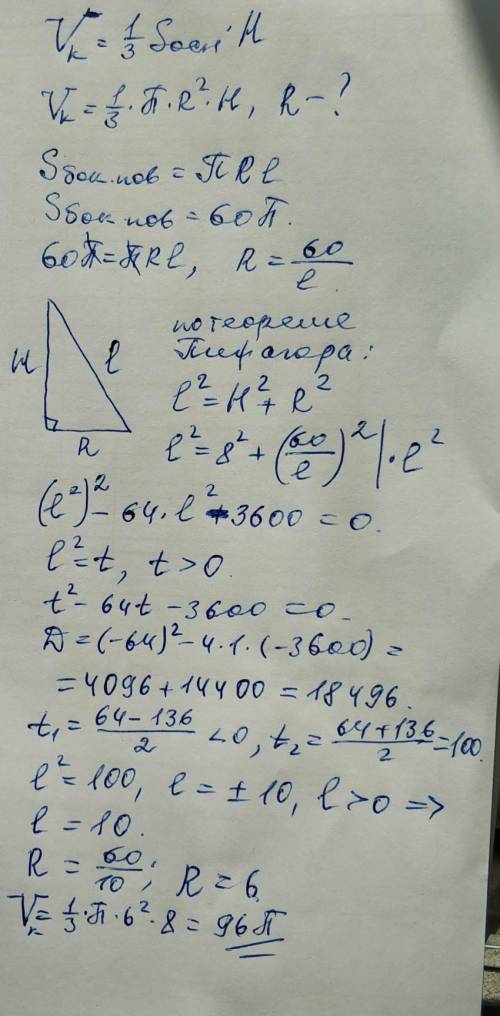 Vк = 1/3 Sосн · H
Vк = 1/3 · П · R² · H, R - ?
Sбок.пов = ПRl
Sбок.пов = 60П.
60П = ПRl, R = 60/l.
по теореме
Пифагора:
H
l
R
l² = H² + R²
l² = 8² + (60/l)² | · l²
(l²)² - 64 · l² - 3600 = 0.
l² = t, t > 0.
t² - 64t - 3600 = 0.
Д = (-64)² - 4 · 1 · (-3600) =
= 4096 + 14400 = 18496.
t₁ = (64 - 136)/2 < 0, t₂ = (64 + 136)/2 = 100.
l² = 100, l = ± 10, l > 0 =>
l = 10.
R = 60/10; R = 6.
Vк = 1/3 · П · 6² · 8 = 96П